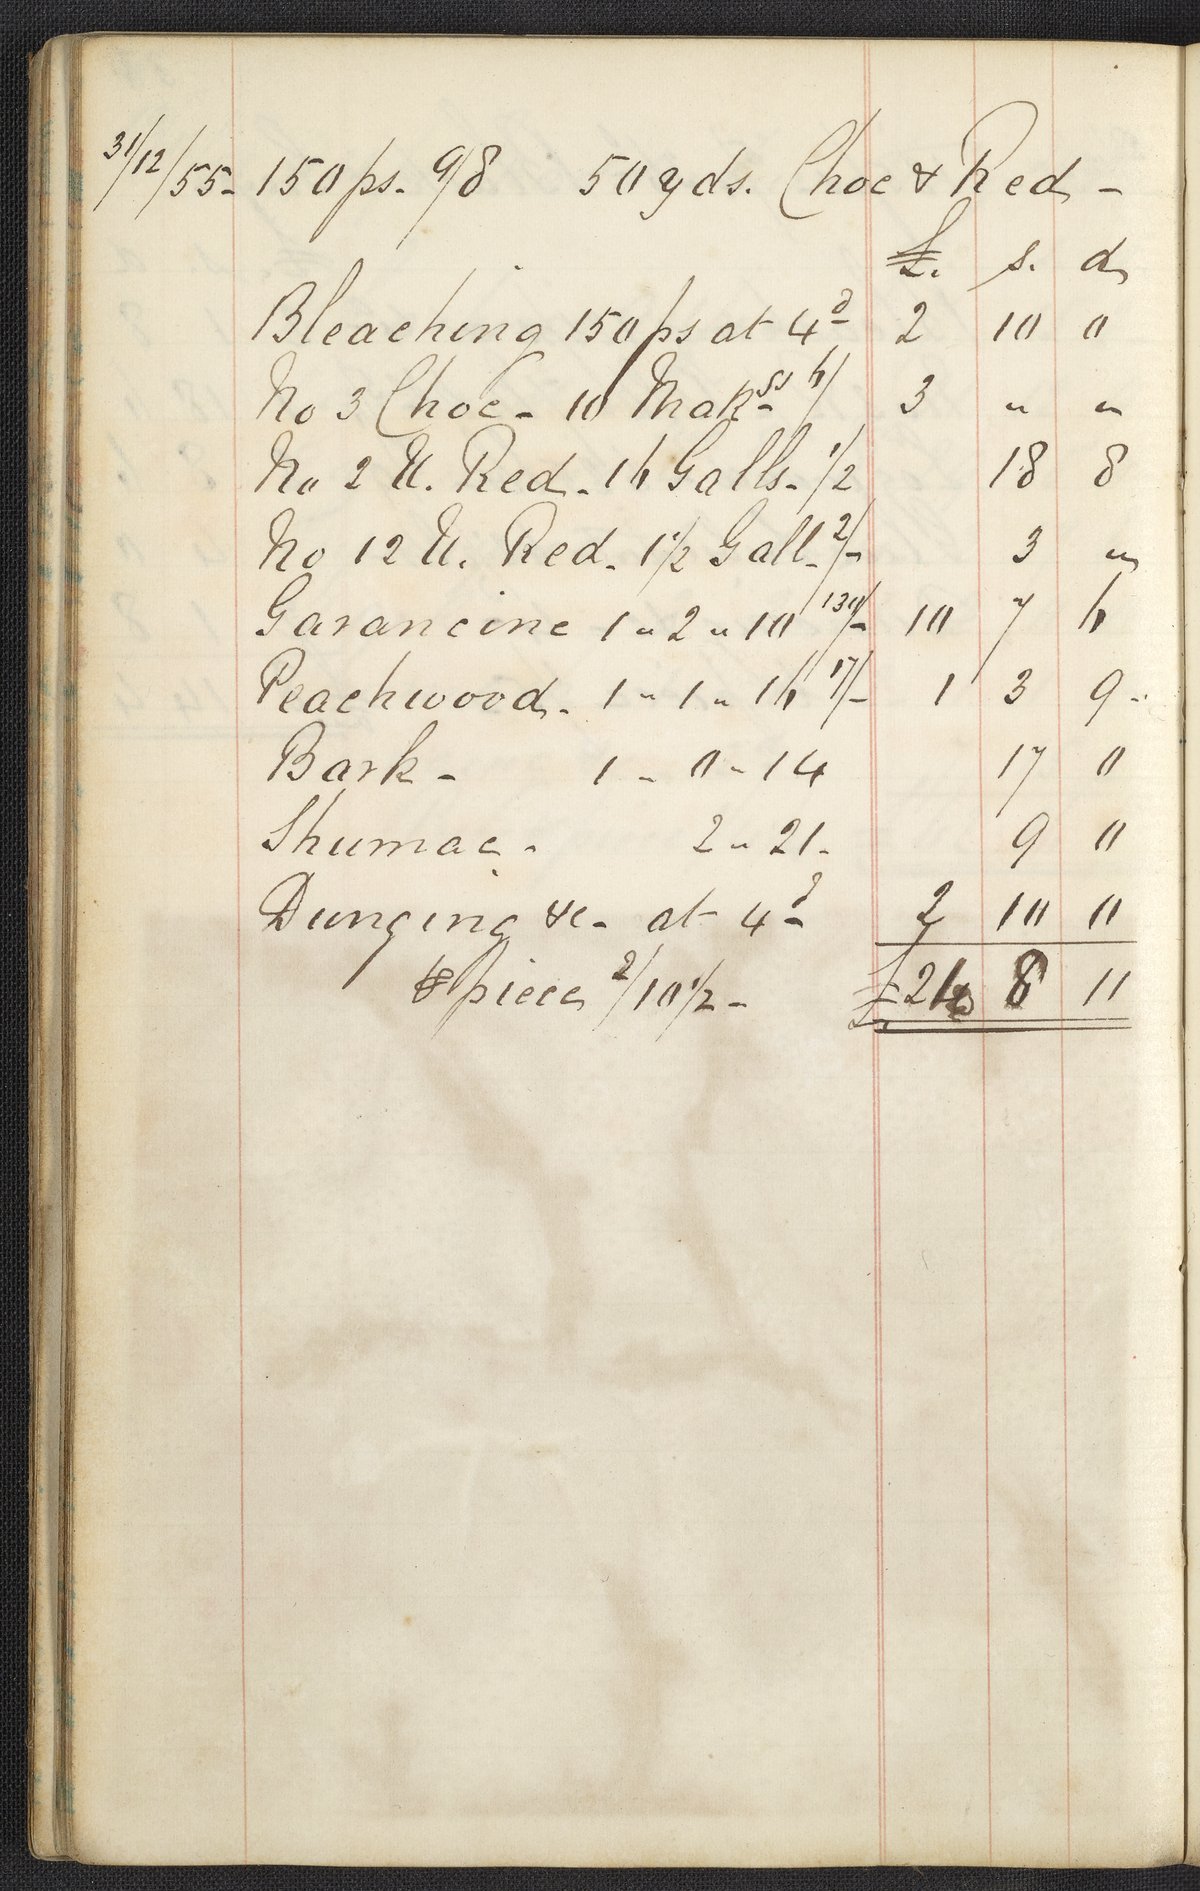 31/12/55- 150 ps. 9/8 50 yds. Choc & Red -
£. s. d
Bleaching 150 ps at 4d 2 10 0
No 3 Choc - 10 Makgs 6/ 3 " "
No 2 U. Red - 16 Galls - 1/2 18 8
No 12 U. Red - 1 1/2 Gall - 2/- 3 "
Garancine 1 " 2 " 10 130/- 10 7 6
Peachwood - 1 " 1 " 16 17/- 1 3 9 -
Bark - 1 - 0 - 14 17 0
Shumac - 2 " 21 - 9 0
Dunging &c - at 4d 2 10 0
⅌ piece 2/10 1/2 - £21 8 11